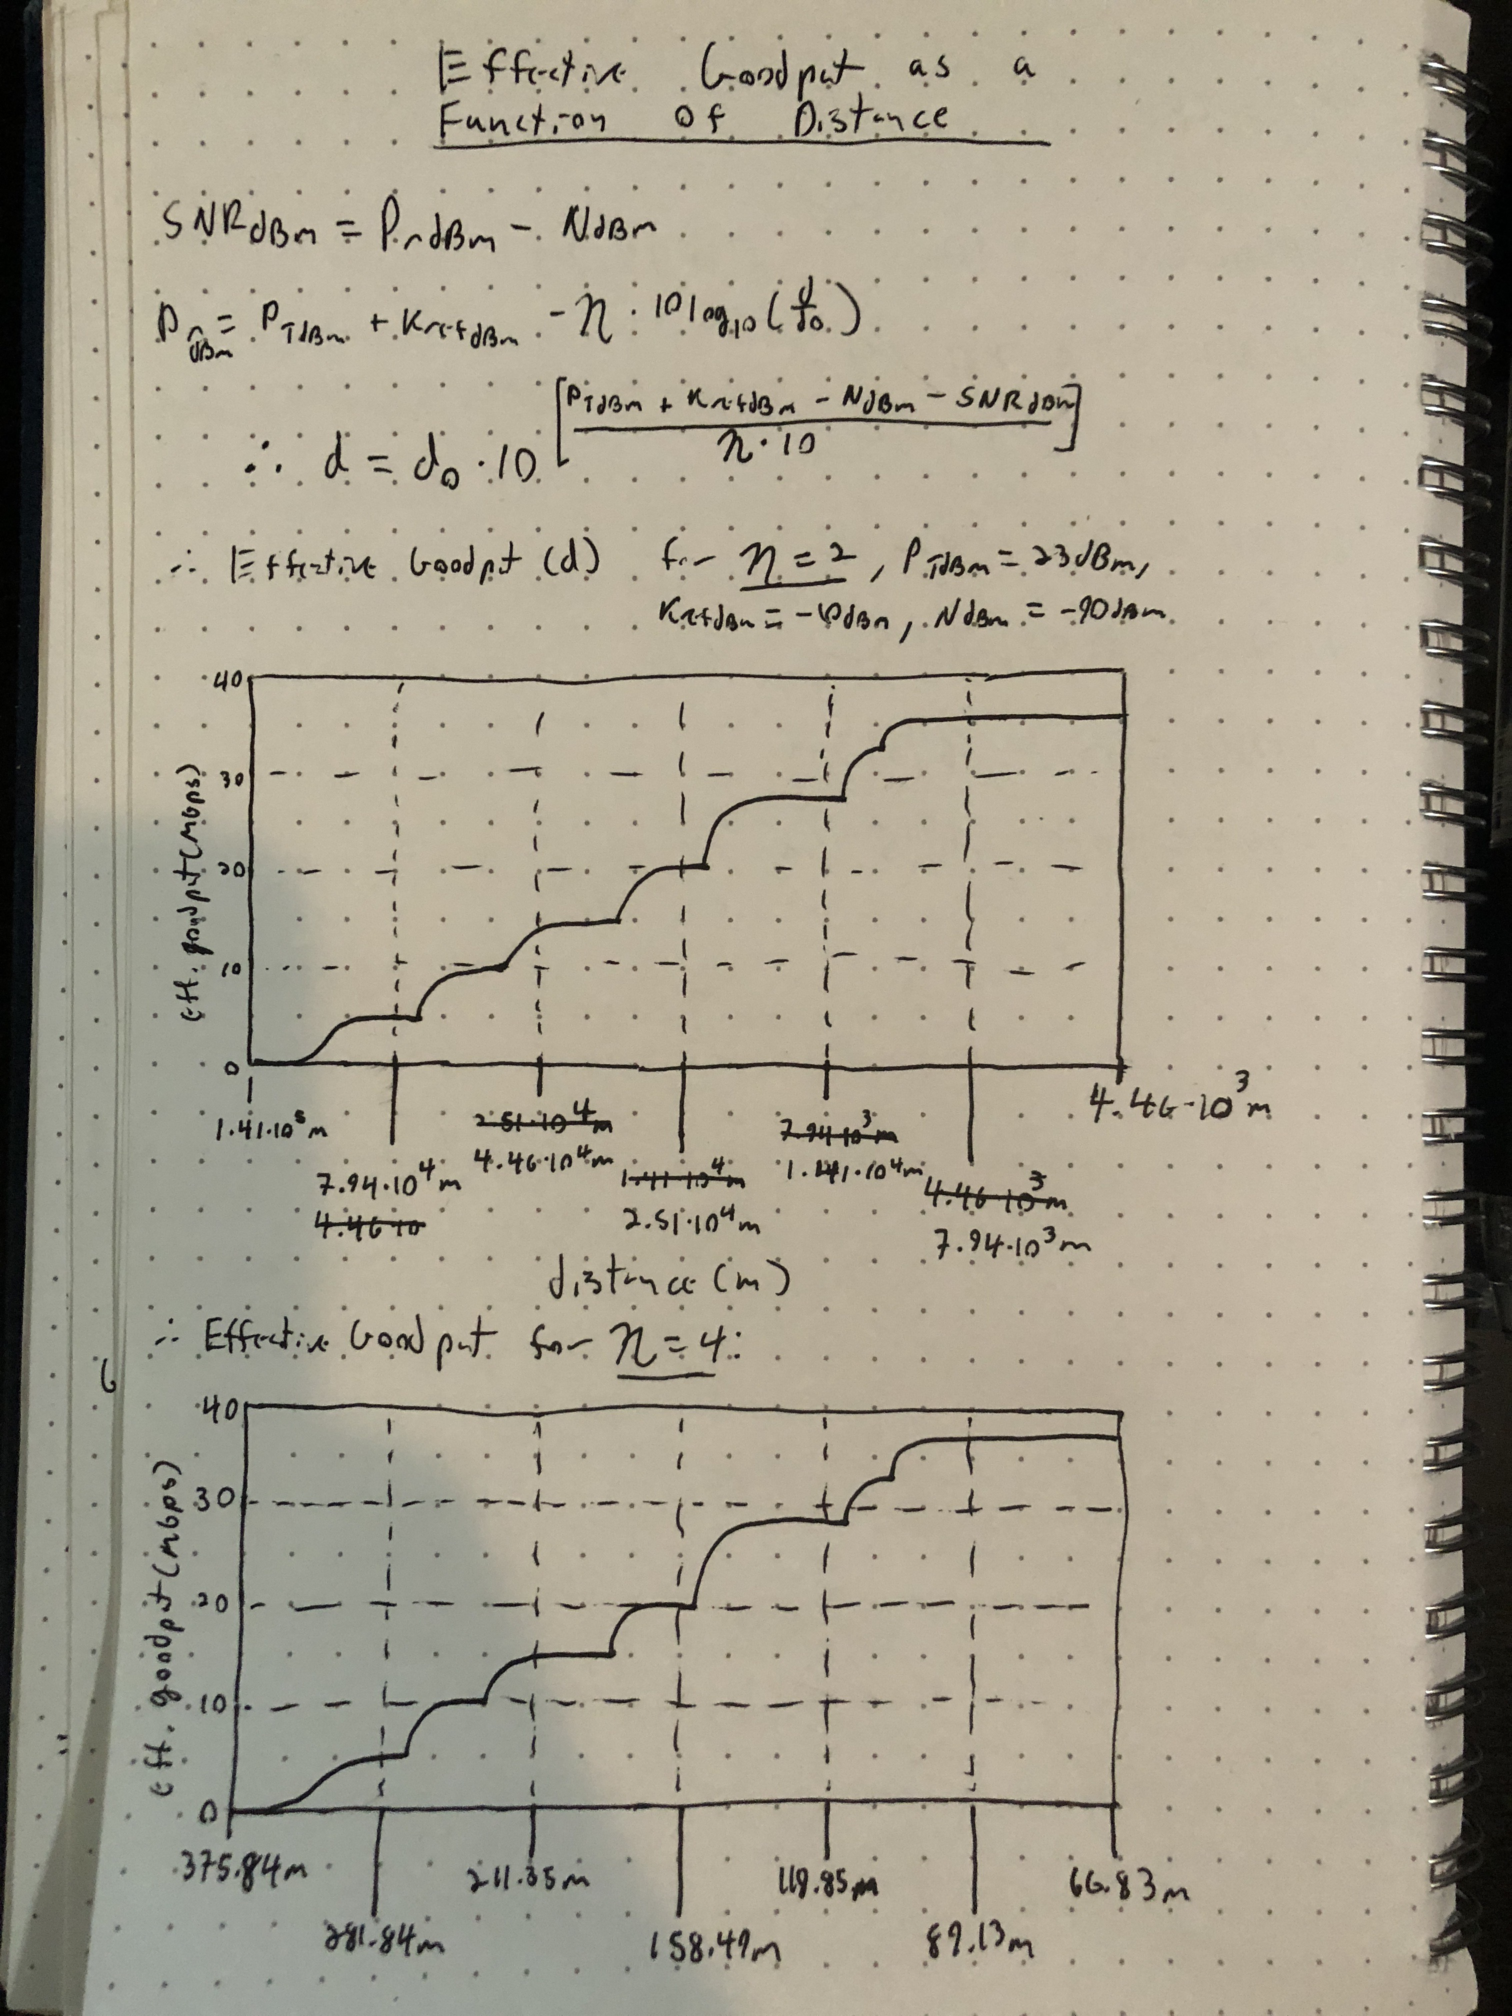 Effective Goodput as a
Function Of Distance
SNRdBm = PrdBm - NdBm
PrdBm = PTdBm + KrefdBm - η · 10log10(d/d0)
∴ d = d0 · 10^[(PTdBm + KrefdBm - NdBm - SNRdBm)/(η · 10)]
∴ Effective Goodput (d) for η = 2, PTdBm = 23dBm,
KrefdBm = -10dBm, NdBm = -90dBm
40
30
20
10
0
eff. goodput (Mbps)
4.46·10³m
1.41·10⁵m
2.51·10⁴m
7.94·10³m
4.46·10⁴m
1.41·10⁴m
7.94·10⁴m
1.41·10⁴m
4.46·10³m
4.46·10
2.51·10⁴m
7.94·10³m
distance (m)
∴ Effective Goodput for η = 4:
40
30
20
10
0
eff. goodput (Mbps)
375.84m 211.35m 118.85m 66.83m
281.84m 158.49m 89.13m